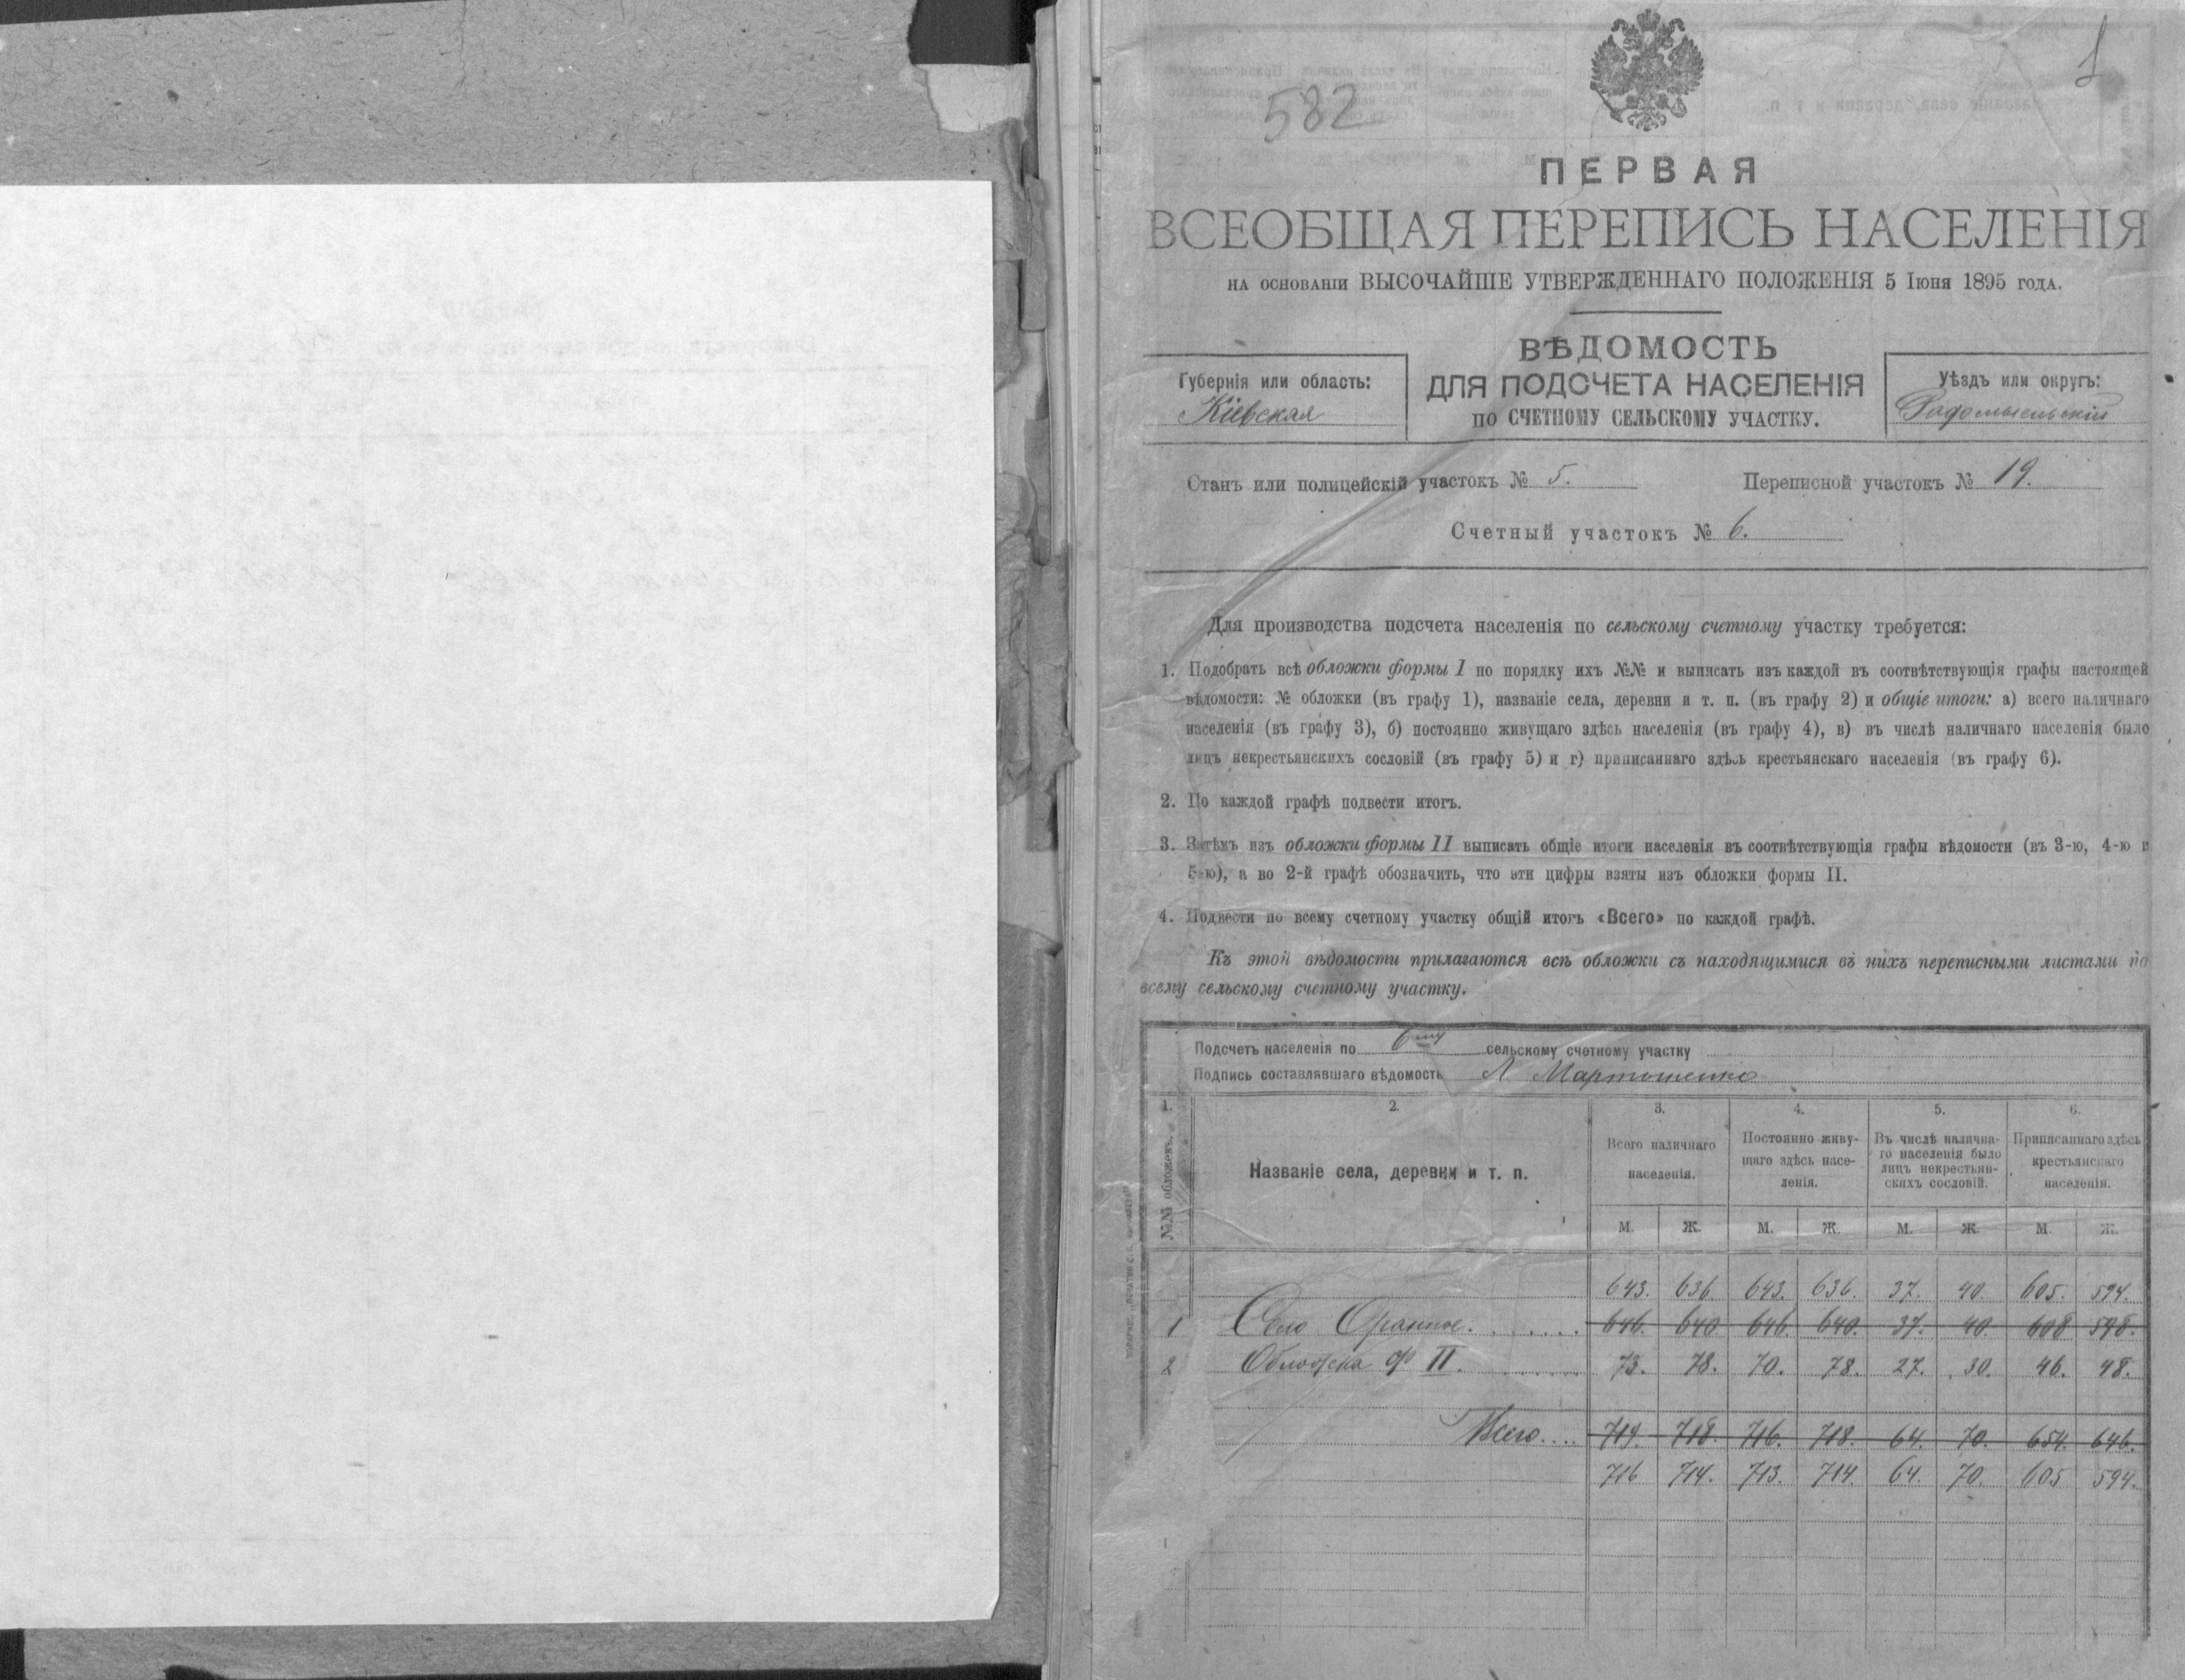 582
1
ПЕРВАЯ
ВСЕОБЩАЯ ПЕРЕПИСЬ НАСЕЛЕНІЯ
НА ОСНОВАНІИ ВЫСОЧАЙШЕ УТВЕРЖДЕННАГО ПОЛОЖЕНІЯ 5 Іюня 1895 ГОДА.
ВѢДОМОСТЬ
ДЛЯ ПОДСЧЕТА НАСЕЛЕНІЯ
ПО СЧЕТНОМУ СЕЛЬСКОМУ УЧАСТКУ.
Губернія или область:
Кіевская
Уѣздъ или округъ:
Радомысльскій
Станъ или полицейскій участокъ № 5. Переписной участокъ № 19.
Счетный участокъ № 6.
Для производства подсчета населенія по сельскому счетному участку требуется:
1. Подобрать всѣ обложки формы I по порядку ихъ №№ и выписать изъ каждой въ соотвѣтствующія графы настоящей
вѣдомости: № обложки (въ графу 1), названіе села, деревни и т. п. (въ графу 2) и общіе итоги: а) всего наличнаго
населенія (въ графу 3), б) постоянно живущаго здѣсь населенія (въ графу 4), в) въ числѣ наличнаго населенія было
лицъ некрестьянскихъ сословій (въ графу 5) и г) приписаннаго здѣсь крестьянскаго населенія (въ графу 6).
2. По каждой графѣ подвести итогъ.
3. Затѣмъ изъ обложки формы II выписать общіе итоги населенія въ соотвѣтствующія графы вѣдомости (въ 3-ю, 4-ю и
5-ю), а во 2-й графѣ обозначить, что эти цифры взяты изъ обложки формы II.
4. Подвести по всему счетному участку общій итогъ «Всего» по каждой графѣ.
Къ этой вѣдомости прилагаются всѣ обложки съ находящимися въ нихъ переписными листами по
всему сельскому счетному участку.
Подсчетъ населенія по 6му сельскому счетному участку
Подпись составлявшаго вѣдомость Л Мартошенко
1. 2. 3. 4. 5. 6.
№№ обложекъ.
Названіе села, деревни и т. п.
Всего наличнаго
населенія.
Постоянно живу-
щаго здѣсь насе-
ленія.
Въ числѣ налична-
го населенія было
лицъ некрестьян-
скихъ сословій.
Приписаннаго здѣсь
крестьянскаго
населенія.
М. Ж. М. Ж. М. Ж. М. Ж.
643. 636. 643. 636. 37. 40. 605. 594.
1 Село Оранное. 646. 640 646. 640. 37. 40. 608 598.
2 Обложка ф II. 73. 78. 70. 78. 27. 30. 46. 48.
Всего.... 719. 718. 716. 718. 64. 70. 654. 646.
716 714. 713. 714. 64. 70. 605 594.